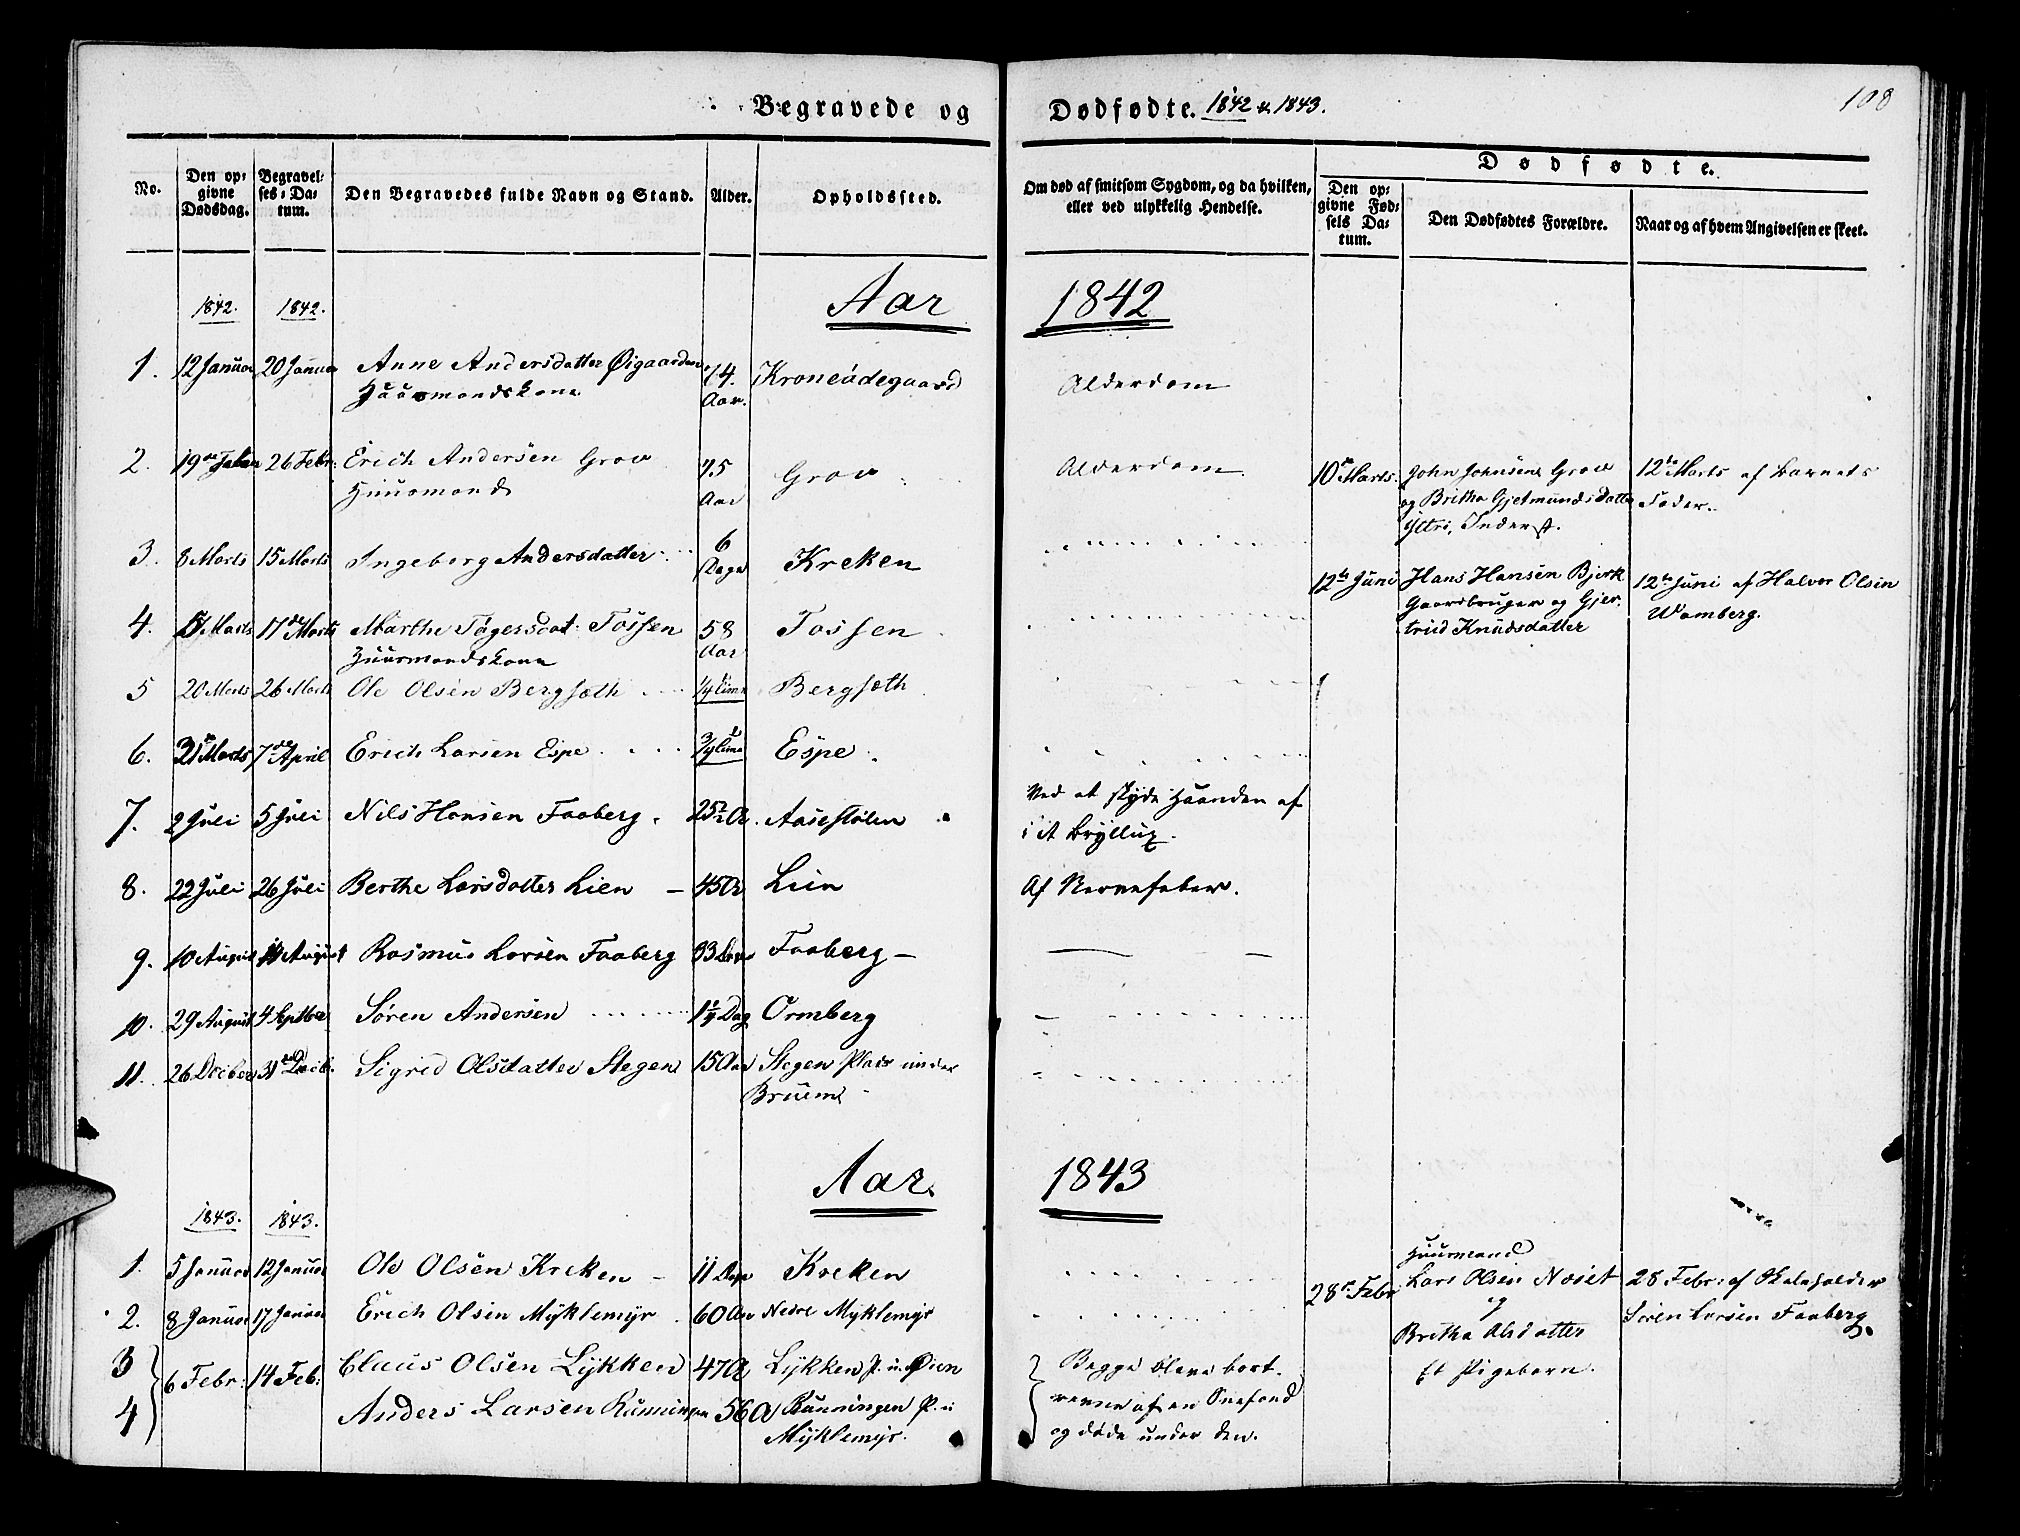 Begravede og
Dødfødte. 1842 & 1843.
108
No.
Den opgivne Dødsdag.
Begravelses-Datum.
Den Begravedes fulde Navn og Stand.
Alder.
Opholdssted.
Om død af smitsom Sygdom, og da hvilken, eller ved ulykkelig Hendelse.
Dødfødte.
Den opgivne Fødsels Datum.
Den Dødfødtes Forældre.
Naar og af hvem Angivelsen er skeet.
1842. 1842. Aar 1842
1. 12 Januar 20 Januar Anne Andersdatter Øigaarden 74 Kroneødegaard Alderdom
Huusmandskone Aar.
2. 19de Febr. 26 Febr: Erich Andersen Grov 75 Grov Alderdom
Huusmand Aar
10de Marts. John Johnsen Grov 12te Marts af Barnets
og Britha Gjetmundsdatter Fader.
Ytri, Inderst.
3. 8 Marts 15 Marts Ingeborg Andersdatter 6 Kreken
Dage
12te Juni Hans Hansen Bjerk 12te Juni af Halvor Olsen
Gaardbruger og Gjer- Wamberg.
trud Knudsdatter
4. 5 Marts 17de Marts Marthe Tøgersdat: Fossen 58 Fossen
Huusmandskone Aar
5 20 Marts 26 Marts Ole Olsen Bergsæth 1/4 Time Bergsæth
6. 31 Marts 7de April Erich Larsen Espe 3/4 Time Espe
7. 2 Juli 5 Juli Nils Hansen Faaberg 25 1/2 A. Aasestølen Ved at skyde Haanden af
i et Bryllup.
8. 22 Juli 26 Juli Berthe Larsdatter Lien 45 Ar Lien Af Nervefeber.
9. 10 August August Rasmus Larsen Faaberg 33 Faaberg
10. 29 August 4 Septbr Søren Andersen 1 Dag Ormberg
11. 26 Decber 31 Decb. Sigrid Olsdatter Stegen 15 Aar Stegen Plads under
Bruem
1843. 1843. Aar. 1843
1. 5 Januar 12 Januar Ole Olsen Kreken 11 Dage Kreken
2. 8 Januar 17 Januar Erich Olsen Myklemyr 60 Aar Nedre Myklemyr
28de Febr Huusmand
Lars Olsen Noset 28 Febr: af Skoleholder
og Søren Larsen Faaberg.
Britha Olsdatter
Et Pigebarn.
3 6 Febr: 14 Feb: Claus Olsen Lykken 47 Ar Lykken P. u. Øien Begge bleve bort-
4 Anders Larsen Rünningen 56 A Rünningen P. u revne af en Sneefond
Myklemyr. og døde under den.